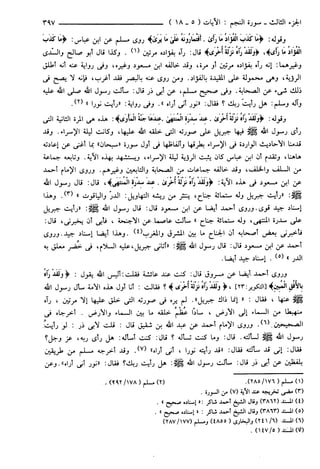 الجزء الثالث ـ سورة النجم : الآيات ( ٥ ـ ١٨ ) ٣٩٧
وقوله : ﴿مَا كَذَبَ الْفُؤَادُ مَا رَأَىٰ . أَفَتُمَارُونَهُ عَلَىٰ مَا يَرَىٰ﴾ روى مسلم عن ابن عباس: ﴿مَا كَذَبَ
الْفُؤَادُ مَا رَأَىٰ﴾، ﴿وَلَقَدْ رَآهُ نَزْلَةً أُخْرَىٰ﴾ قال: رآه بفؤاده مرتين (١) . وكذا قال أبو صالح والسُدِّي
وغيرهما: إنه رآه بفؤاده مرتين أو مرة، وقد خالفه ابن مسعود وغيره، وفى رواية عنه أنه أطلق
الرؤية، وهى محمولة على المقيدة بالفؤاد. ومن روى عنه بالبصر فقد أغرب، فإنه لا يصح فى
ذلك شىء عن الصحابة. وفى صحيح مسلم، عن أبى ذر قال: سألت رسول الله صلى الله عليه
وآله وسلم: هل رأيت ربك ؟ فقال: «نور أنى أراه» . وفى رواية: «رأيت نورا » (٢) .
وقوله : ﴿وَلَقَدْ رَآهُ نَزْلَةً أُخْرَىٰ . عِندَ سِدْرَةِ الْمُنتَهَىٰ . عِندَهَا جَنَّةُ الْمَأْوَىٰ﴾: هذه هى المرة الثانية التى
رأى رسول الله ﷺ فيها جبريل على صورته التى خلقه الله عليها، وكانت ليلة الإسراء. وقد
قدمنا الأحاديث الواردة فى الإسراء بطرقها وألفاظها فى أول سورة «سبحان» بما أغنى عن إعادته
هاهنا، وتقدم أن ابن عباس كان يثبت الرؤية ليلة الإسراء، ويستشهد بهذه الآية. وتابعه جماعة
من السلف والخلف، وقد خالفه جماعات من الصحابة والتابعين وغيرهم. وروى الإمام أحمد
عن ابن مسعود فى هذه الآية: ﴿وَلَقَدْ رَآهُ نَزْلَةً أُخْرَىٰ . عِندَ سِدْرَةِ الْمُنتَهَىٰ﴾، قال: قال رسول الله
ﷺ: «رأيت جبريل وله ستمائة جناح، ينتثر من ريشه التهاويل: الدر والياقوت » (٣) . وهذا
إسناد جيد قوى. وروى أحمد أيضا عن ابن مسعود قال: قال رسول الله ﷺ: «رأيت جبريل
على سدرة المنتهى، وله ستمائة جناح » سألت عاصما عن الأجنحة ، فأبى أن يخبرنى، قال:
فأخبرنى بعض أصحابه أن الجناح ما بين المشرق والمغرب(٤) . وهذا أيضا إسناد جيد. وروى
أحمد عن ابن مسعود قال: قال رسول الله ﷺ : «أتانى جبريل، عليه السلام، فى خُضر معلق به
الدر » (٥) . إسناد جيد أيضا.
وروى أحمد أيضا عن مسروق قال: كنت عند عائشة فقلت: أليس الله يقول : ﴿وَلَقَدْ رَآهُ
بِالْأُفُقِ الْمُبِينِ﴾ [التكوير: ٢٣] ، ﴿وَلَقَدْ رَآهُ نَزْلَةً أُخْرَىٰ﴾ ؟ فقالت : أنا أول هذه الأمة سأل رسول الله
ﷺ عنها ، فقال : « إنما ذاك جبريل». لم يره فى صورته التى خلق عليها إلا مرتين ، رآه
منهبطا من السماء إلى الأرض ، سادًا عُظْمُ خلقه ما بين السماء والأرض . أخرجاه فى
الصحيحين (٦) . وروى الإمام أحمد عن عبد الله بن شقيق قال : قلت لأبى ذر : لو رأيتُ
رسول الله ﷺ لسألته. قال: وما كنت تسأله ؟ قال: كنت أسأله: هل رأى ربه، عز وجل؟
فقال: إنى قد سألته فقال: «قد رأيته نورا ، أنى أراه» (٧) . وقد أخرجه مسلم من طريقين
بلفظين عن أبى ذر قال: سألت رسول الله ﷺ: هل رأيت ربك؟ فقال: «نور أنى أراه» .وعن
(١) مسلم (١٧٦/ ٢٨٥). (٢) مسلم (١٧٨/ ٢٩٢) .
(٣) مضى تخريجه عند الآية (٧) من السورة .
(٤) المسند (٣٨٦٢) وقال الشيخ أحمد شاكر : « إسناده صحيح » .
(٥) المسند (٣٨٦٣) وقال الشيخ أحمد شاكر : « إسناده صحيح » .
(٦) المسند (٦/ ٢٤١) والبخارى (٤٨٥٥) ومسلم (١٧٧/ ٢٨٧)
(٧) المسند (٥/ ١٤٧) .